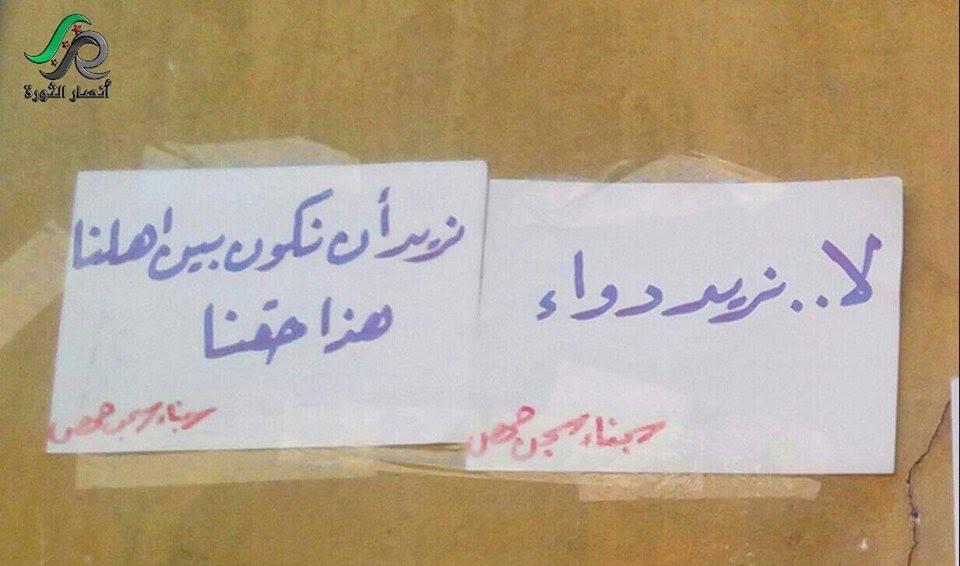 أنصار الثورة
لا.. نريد دواء
سجناء سجن حمص
نريد أن نكون بين اهلنا
هذا حقنا
سجناء سجن حمص